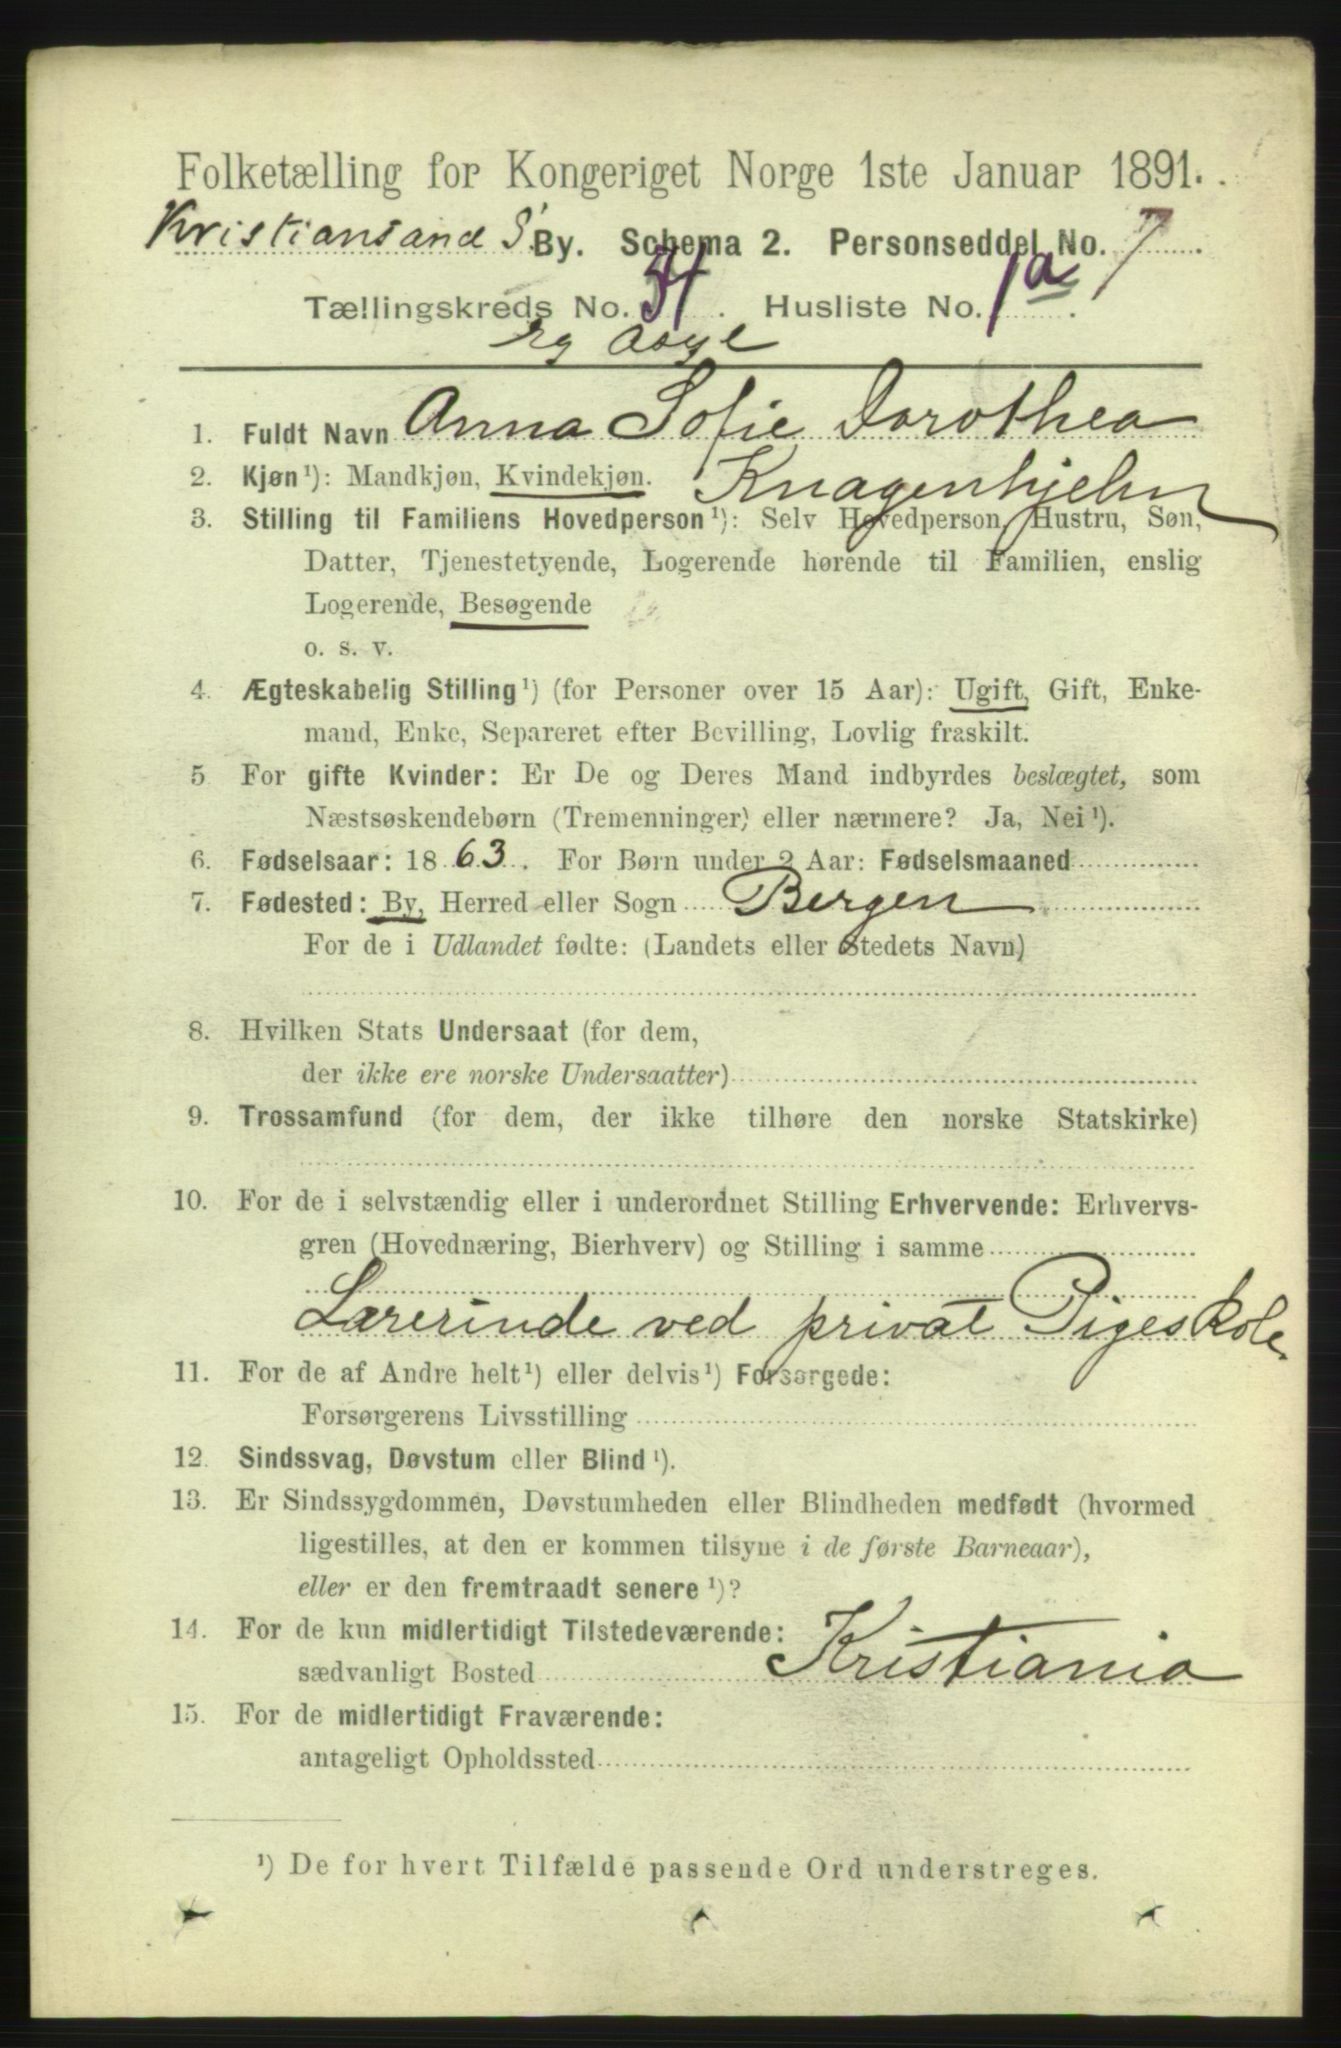 Folketælling for Kongeriget Norge 1ste Januar 1891.
Kristiansand S. By. Schema 2. Personseddel No. 7
Tællingskreds No. 34. Husliste No. 1a.
1. Fuldt Navn Anna Sofie Dorothea
Knagenhjelm
2. Kjøn¹): Mandkjøn, Kvindekjøn.
3. Stilling til Familiens Hovedperson¹): Selv Hovedperson, Hustru, Søn,
Datter, Tjenestetyende, Logerende hørende til Familien, enslig
Logerende, Besøgende
o. s. v.
4. Ægteskabelig Stilling¹) (for Personer over 15 Aar): Ugift, Gift, Enke-
mand, Enke, Separeret efter Bevilling, Lovlig fraskilt.
5 For gifte Kvinder: Er De og Deres Mand indbyrdes beslægtet, som
Næstsøskendebørn (Tremenninger) eller nærmere? Ja, Nei¹).
6. Fødselsaar: 1863. For Børn under 2 Aar: Fødselsmaaned
7. Fødested: By, Herred eller Sogn Bergen
For de i Udlandet fødte: (Landets eller Stedets Navn)
8. Hvilken Stats Undersaat (for dem,
der ikke ere norske Undersaatter)
9. Trossamfund (for dem, der ikke tilhøre den norske Statskirke)
10. For de i selvstændig eller i underordnet Stilling Erhvervende: Erhvervs-
gren (Hovednæring, Bierhverv) og Stilling i samme
Lærerinde ved privat Pigeskole
11. For de af Andre helt¹) eller delvis¹) Forsørgede:
Forsørgerens Livsstilling
12. Sindssvag, Døvstum eller Blind¹).
13. Er Sindssygdommen, Døvstumheden eller Blindheden medfødt (hvormed
ligestilles, at den er kommen tilsyne i de første Barneaar),
eller er den fremtraadt senere¹)?
14. For de kun midlertidigt Tilstedeværende:
sædvanligt Bosted Kristiania
15. For de midlertidigt Fraværende:
antageligt Opholdssted
¹) De for hvert Tilfælde passende Ord understreges.